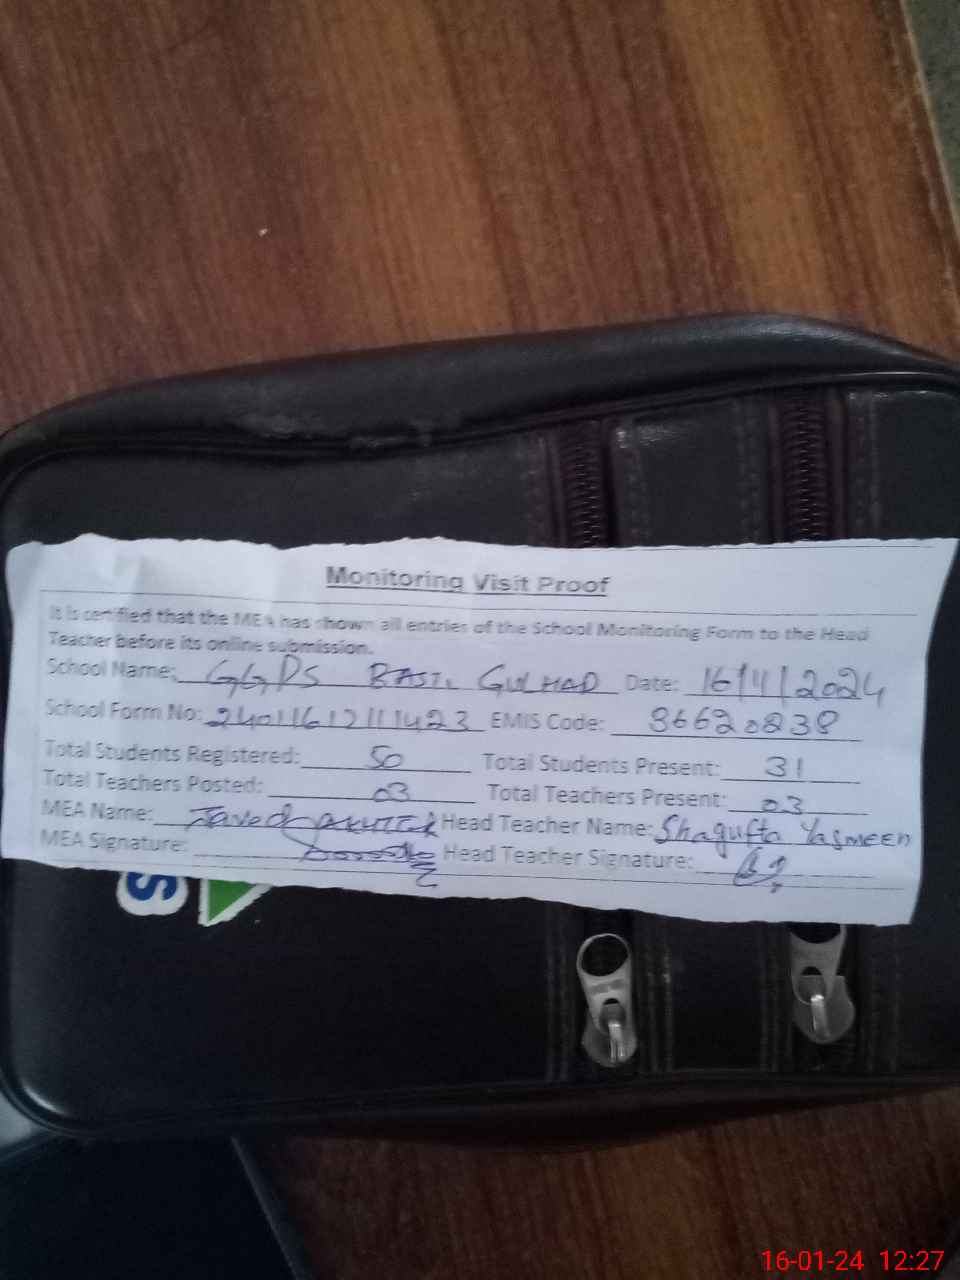 Monitoring Visit Proof
It is certified that the MEA has shown all entries of the School Monitoring Form to the Head
Teacher before its online submission.
School Name: GGPS BASTI GULHAD Date: 16/1/2024
School Form No: 240116121111423 EMIS Code: 36620838
Total Students Registered: 50 Total Students Present: 31
Total Teachers Posted: 03 Total Teachers Present: 03
MEA Name: Javed AKHTER Head Teacher Name: Shagufta YasmEEn
MEA Signature: Head Teacher Signature:
S
16-01-24 12:27